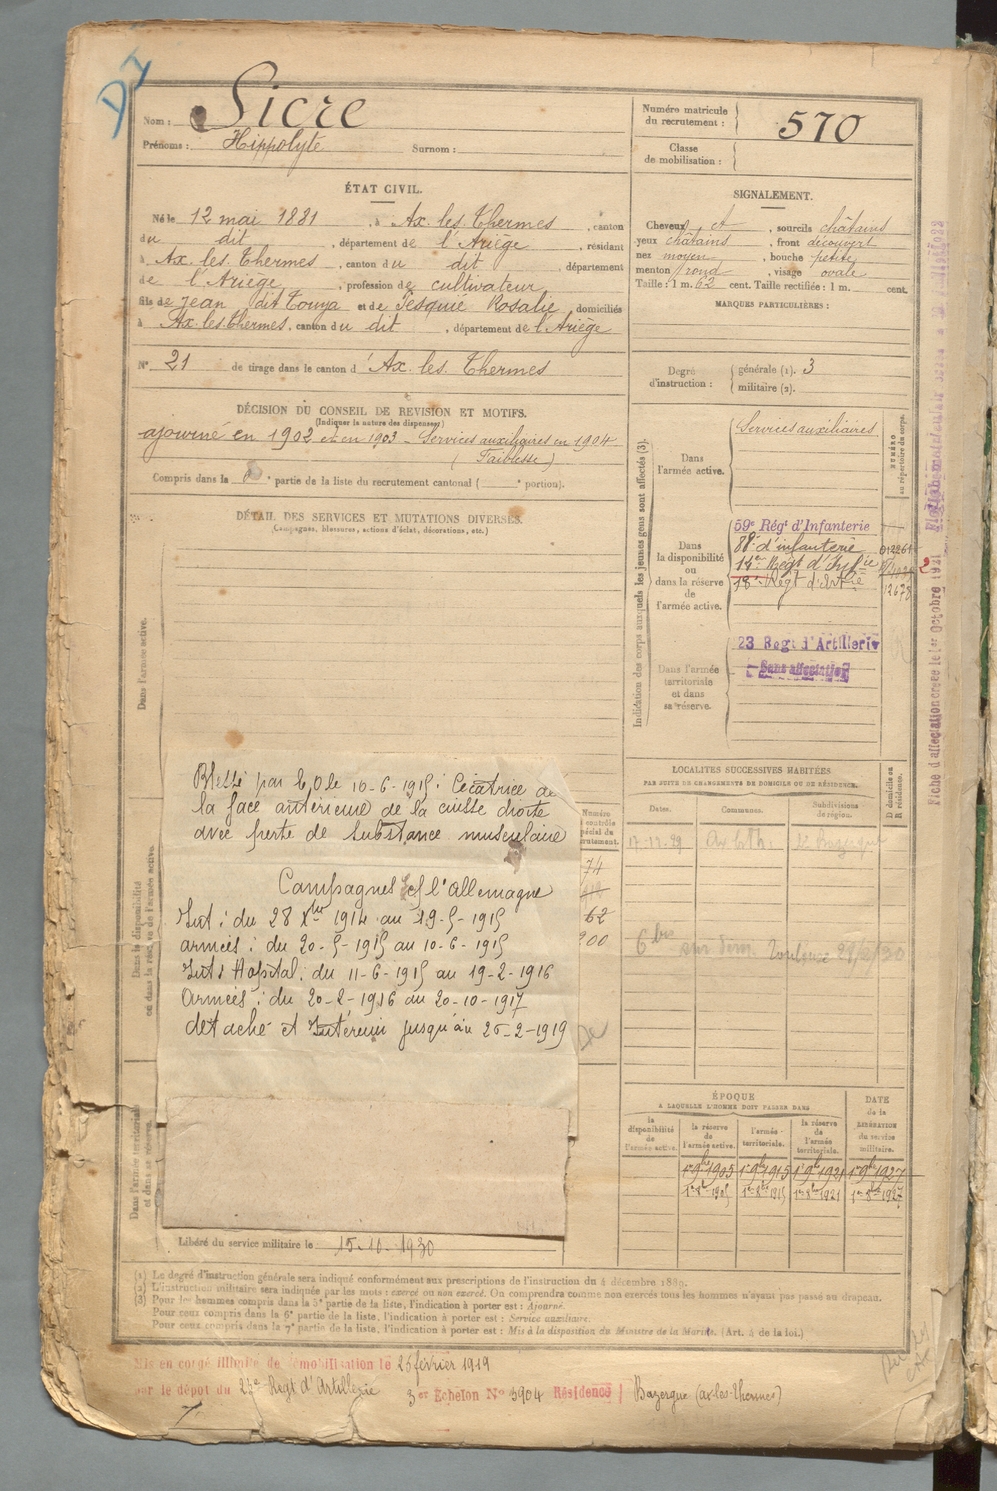 Nom : Sicre
Prénoms : Hippolyte Surnom :
Numéro matricule du recrutement : 570
Classe de mobilisation :
ÉTAT CIVIL.
Né le 12 mai 1881, à Ax. les. Thermes, canton
du dit, département de l'Ariège, résidant
à Ax. les Thermes, canton du dit, département
de l'Ariège, profession de cultivateur
fils de Jean dit Touya et de Jesquié Rosalie, domiciliés
à Ax. les Thermes, canton du dit, département de l'Ariège
N° 21 de tirage dans le canton d'Ax. les. Thermes
SIGNALEMENT.
Cheveux et, sourcils châtains
yeux châtains, front découvert
nez moyen, bouche petite
menton rond, visage ovale
Taille : 1 m. 62 cent. Taille rectifiée : 1 m. cent.
MARQUES PARTICULIÈRES :
Degré d'instruction : générale (1). 3
militaire (2).
DÉCISION DU CONSEIL DE REVISION ET MOTIFS.
(Indiquer la nature des dispenses)
ajourné en 1902 et en 1903 - Services auxiliaires en 1904
(Faiblesse)
Compris dans la 6e partie de la liste du recrutement cantonal ( e portion).
DÉTAIL DES SERVICES ET MUTATIONS DIVERSES.
(Campagnes, blessures, actions d'éclat, décorations, etc.)
Dans l'armée active.
Dans la disponibilité ou dans la réserve de l'armée active.
Dans l'armée territoriale et dans sa réserve.
Blessé par le 10-6-1915 : Cicatrice de
la face antérieure de la cuisse droite
avec perte de substance musculaire
Campagnes l'Allemagne
Int : du 28 Xbre 1914 au 19-5-1915
armées : du 20-5-1915 au 10-6-1915
Int : Hopital : du 11-6-1915 au 19-2-1916
Armées : du 20-2-1916 au 20-10-1917
détaché et Intérieur jusqu'au 25-2-1919
Libéré du service militaire le 15-10-1930
Indication des corps auxquels les jeunes gens sont affectés (3).
NUMÉRO au répertoire du corps.
Dans l'armée active.
Services auxiliaires
Dans la disponibilité ou dans la réserve de l'armée active.
59e Régt d'Infanterie
88e d'infanterie
14e Régt d'Infie
18e Régt d'Artie
12678
Dans l'armée territoriale et dans sa réserve.
23 Regt d'Artillerie
Sans affectation
Fiche d'affectation créée le 1er Octobre 1921
LOCALITÉS SUCCESSIVES HABITÉES
PAR SUITE DE CHANGEMENTS DE DOMICILE OU DE RÉSIDENCE.
Dates. Communes. Subdivisions de région. D domicile ou R résidence.
74
62
6 bis Toulouse
ÉPOQUE
A LAQUELLE L'HOMME DOIT PASSER DANS
DATE de la LIBÉRATION du service militaire.
la disponibilité de l'armée active.
la réserve de l'armée active.
l'armée territoriale.
la réserve de l'armée territoriale.
1er 9bre 1905 1er 9bre 1915 1er 9bre 1921 1er 9bre 1927
1er 8bre 1905 1er 8bre 1915 1er 8bre 1921 1er 8bre 1927
(1) Le degré d'instruction générale sera indiqué conformément aux prescriptions de l'instruction du 4 décembre 1889.
(2) L'instruction militaire sera indiquée par les mots : exercé ou non exercé. On comprendra comme non exercés tous les hommes n'ayant pas passé au drapeau.
(3) Pour les hommes compris dans la 5e partie de la liste, l'indication à porter est : Ajourné.
Pour ceux compris dans la 6e partie de la liste, l'indication à porter est : Service auxiliaire.
Pour ceux compris dans la 7e partie de la liste, l'indication à porter est : Mis à la disposition du Ministre de la Marine. (Art. 4 de la loi.)
Mis en congé illimité de démobilisation le 26 février 1919
par le dépôt du 23e Régt d'Artillerie 3er Echelon N° 3904 Résidence Bazergue (ax-les-Thermes)